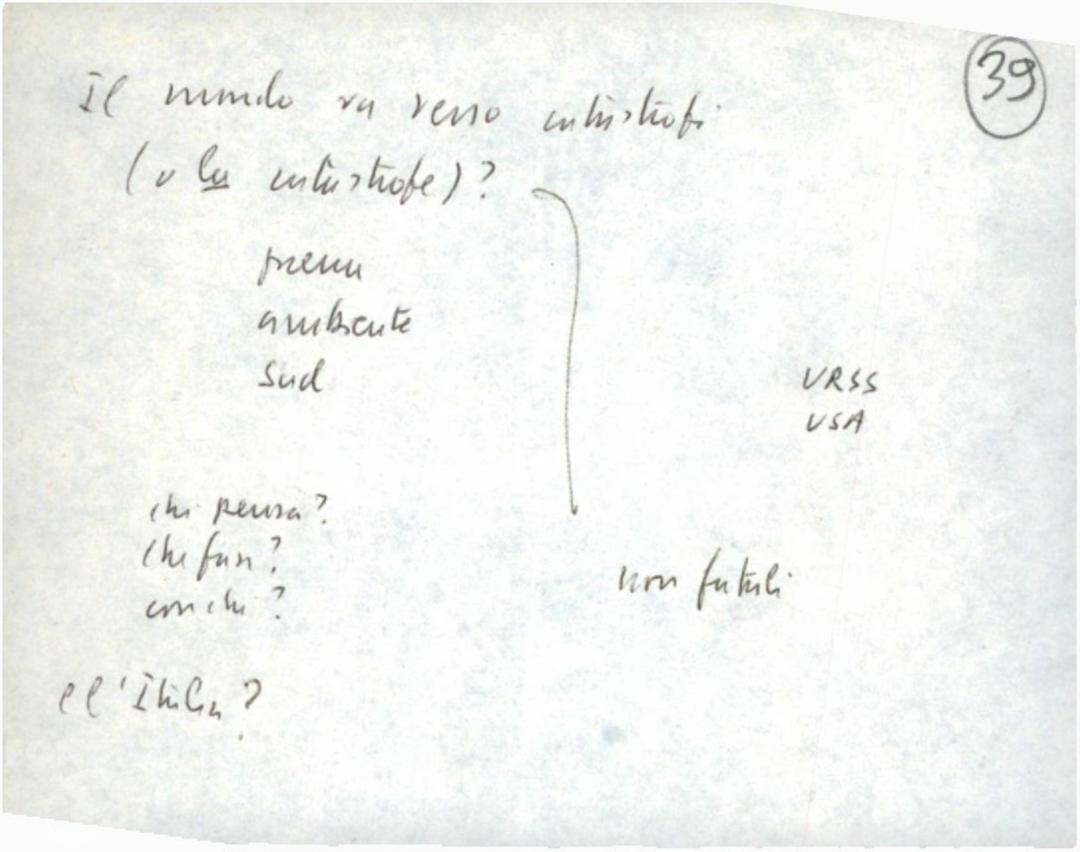 39
Il mondo va verso catastrofi
(o la catastrofe)?
guerra
ambiente
Sud
URSS
USA
chi pensa?
che fare?
con chi?
non fatali
e l'Italia?